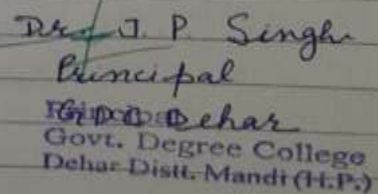 Dr. J. P. Singh
Principal
Dehar
Govt. Degree College
Dehar Distt. Mandi (H.P.)